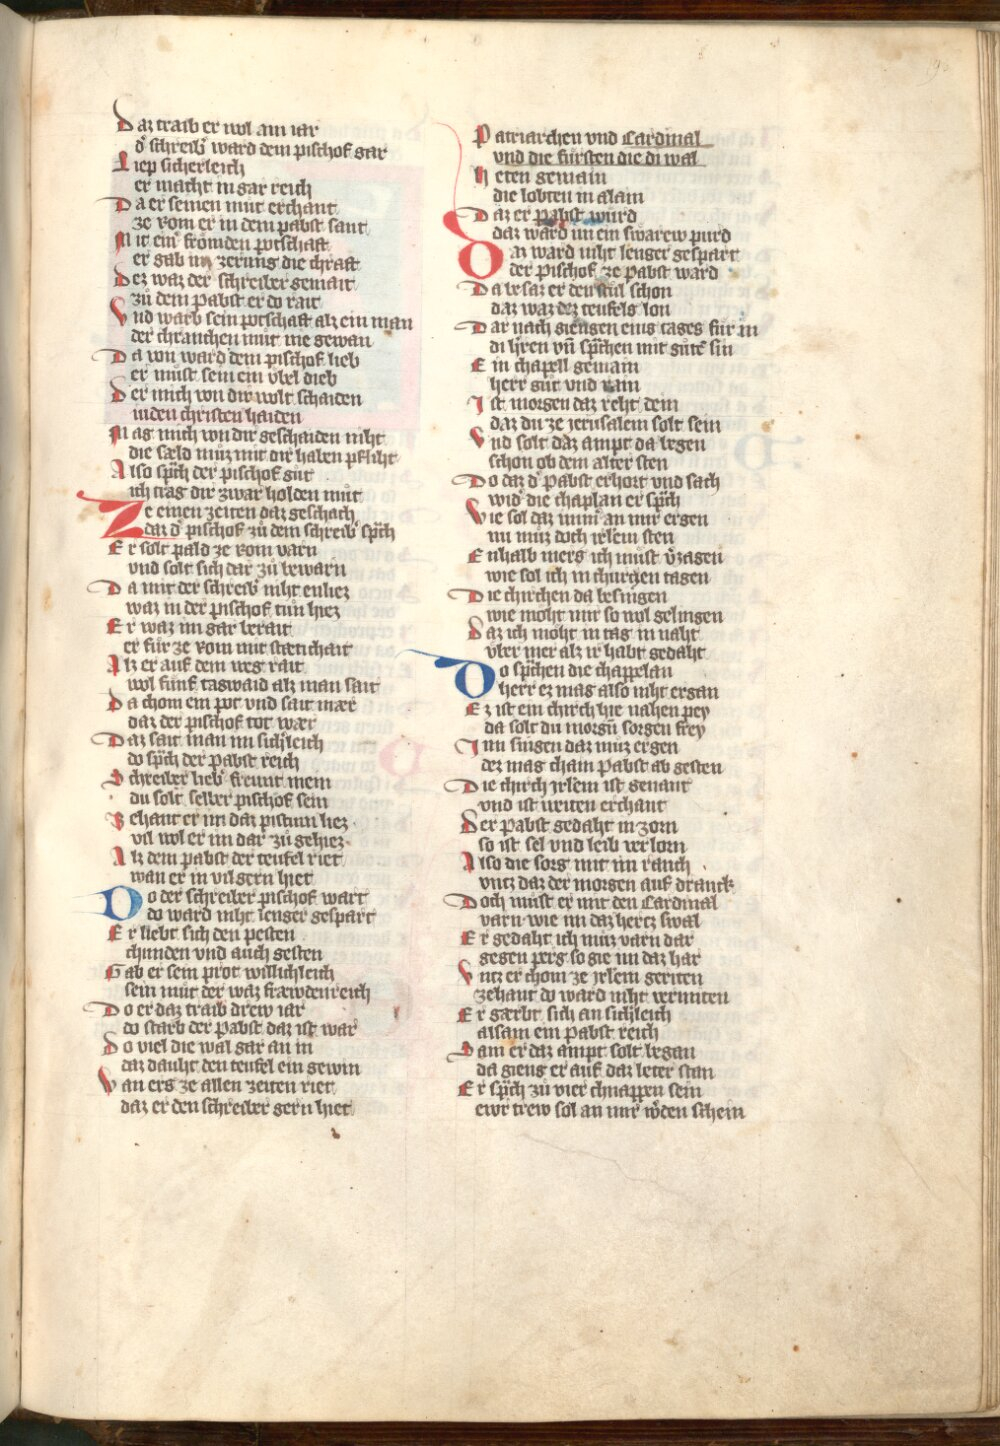 Daz traib er wol ain iar
d̾ schreib̾ ward dem pischof gar
Liep sicherleich
er macht in gar reich
Da er seinen mut erchant
ze rom er in dem pabst sant
Mit ein̾ frömden potschaft
er gab im zerung die chraft
Dez waz der schreiber gemait
zů dem pabst er do rait
Vnd warb sein potschaft alz ein man
der chranchen mut nie gewan
Da von ward dem pischof lieb
er must sein ein vbel dieb
Der mich von dir wolt schaiden
in den christen haiden
Mag mich von dir geschaiden niht
die sæld můz mit dir haben pfliht
Also sp̾ch der pischof gůt
ich trag dir zwar holden můt
Ze einen zeiten daz geschach
daz d̾ pischof zů dem schreib̾ sp̾ch
Er solt pald ze rom varn
vnd solt sich dar zů bewarn
Da mit der schreib̾ niht enliez
waz in der pischof tůn hiez
Er waz im gar berait
er fůr ze rom mit stætichait
Alz er auf dem weg rait
wol fünf tagwaid alz man sait
Da chom ein pot vnd sait mær
daz der pischof tot wær
Daz sait man im sich̾leich
do sp̾ch der pabst reich
Schreiber lieb̾ freunt mein
du solt selber pischof sein
Zehant er im daz pistum liez
vil wol er im dar zů gehiez
Alz dem pabst der teufel riet
wan er in vil gern hiet
Do der schreiber pischof wart
do ward niht lenger gespart
Er liebt sich den pesten
chunden vnd auch gesten
Gab er sein prot willichleich
sein můt der waz fræwdenreich
Do er daz traib drew iar
do starb der pabst daz ist war
Do viel die wal gar an in
daz dauht den teufel ein gewin
Wan ers ze allen zeiten riet
daz er den schreiber gern hiet
Patriarchen vnd Cardinal
vnd die fürsten die di wal
Heten gemain
die lobten in alain
Daz er pabst würd
daz ward im ein swarew purd
Daz ward niht lenger gespart
der pischof ze pabst ward
Da besaz er den stůl schon
daz waz dez teufels lon
Dar nach giengen eins tages für in
di h̾ren vn̄ sp̾chen mit gůtē sin
Ein chapell gemain
herr gůt vnd rain
Ist morgen daz reht dem
daz du ze jerusalem solt sein
Vnd solt daz ampt da legen
schon ob dem alter sten
Do daz d̾ pabst erhort vnd sach
wid̾ die chaplan er sp̾ch
Wie sol daz nimm̾ an mir ergen
nu můz doch irl̄em sten
Enhalb merz ich můst v̾zagen
wie sol ich in churtzen tagen
Die chirchen da besingen
wie möht mir so wol gelingen
Daz ich möht in tag in naht
vber mer alz ir habt gedaht
Do sp̾chen die chappelan
herr ez mag also niht ergan
Ez ist ein chirch hie nahen pey
da solt du morgn̄ sorgen frey
Inn singen daz můz ergen
dez mag chain pabst ab gesten
Die chirch irl̄em ist genant
vnd ist weiten erchant
Der pabst gedaht in zorn
so ist sel vnd leib verlorn
Also die sorg mit im ranch
vntz daz der morgen auf dranck
Doch můst er mit den Cardinal
varn wie im daz hertz swal
Er gedaht ich můz varn dar
gegen perg so gie im daz har
Vntz er chom ze irl̄em geriten
zehant do ward niht vermiten
Er gærbt sich an sich̾leich
alsam ein pabst reich
Dam er daz ampt solt began
da gieng er auf daz leter stan
Er sp̾ch zů vier chnappen sein
ewr trew sol an mir w̾den schein